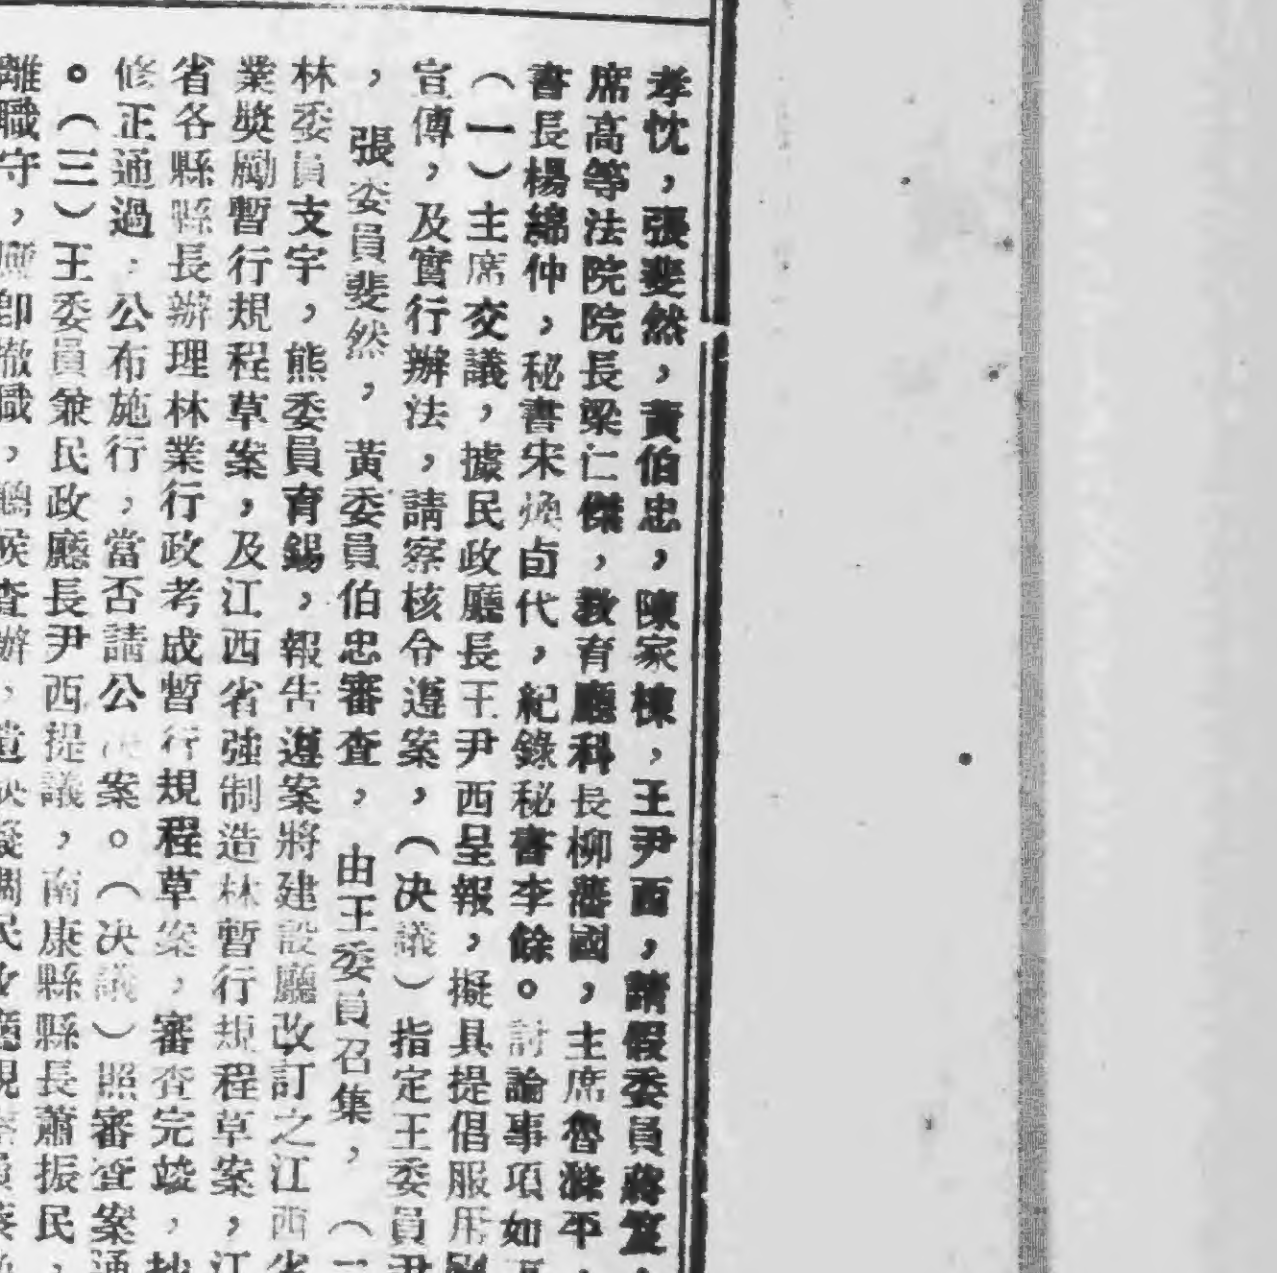 孝忱，張斐然，黃伯忠，陳家棟，王尹西，請假委員蔣笈，
席高等法院院長梁仁傑，教育廳科長柳藩國，主席魯滌平，
書長楊綿仲，秘書宋煥卣代，紀錄秘書李餘。討論事項如
（一）主席交議，據民政廳長王尹西呈報，擬具提倡服用
宣傳，及實行辦法，請察核令遵案，（决議）指定王委員尹
，張委員斐然，黃委員伯忠審查，由王委員召集，（二
林委員支宇，熊委員育錫，報告遵案將建設廳改訂之江西省
業獎勵暫行規程草案，及江西省強制造林暫行規程草案，江
省各縣縣長辦理林業行政考成暫行規程草案，審查完竣，抄
修正通過，公布施行，當否請公决案。（决議）照審查案通
。（三）王委員兼民政廳長尹西提議，南康縣縣長蕭振民，
離職守，應卽撤職，聽候查辦，遺缺擬調民政廳視察員